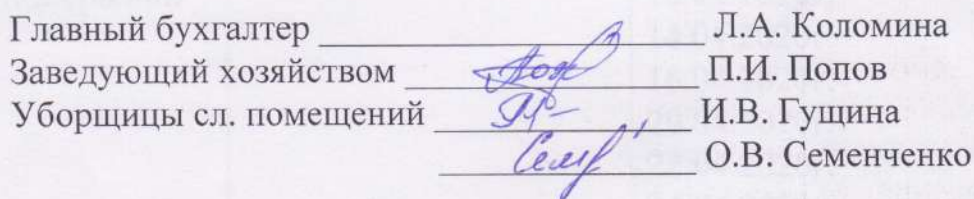 Главный бухгалтер ____________________ Л.А. Коломина
Заведующий хозяйством ____________________ П.И. Попов
Уборщицы сл. помещений ____________________ И.В. Гущина
____________________ О.В. Семенченко